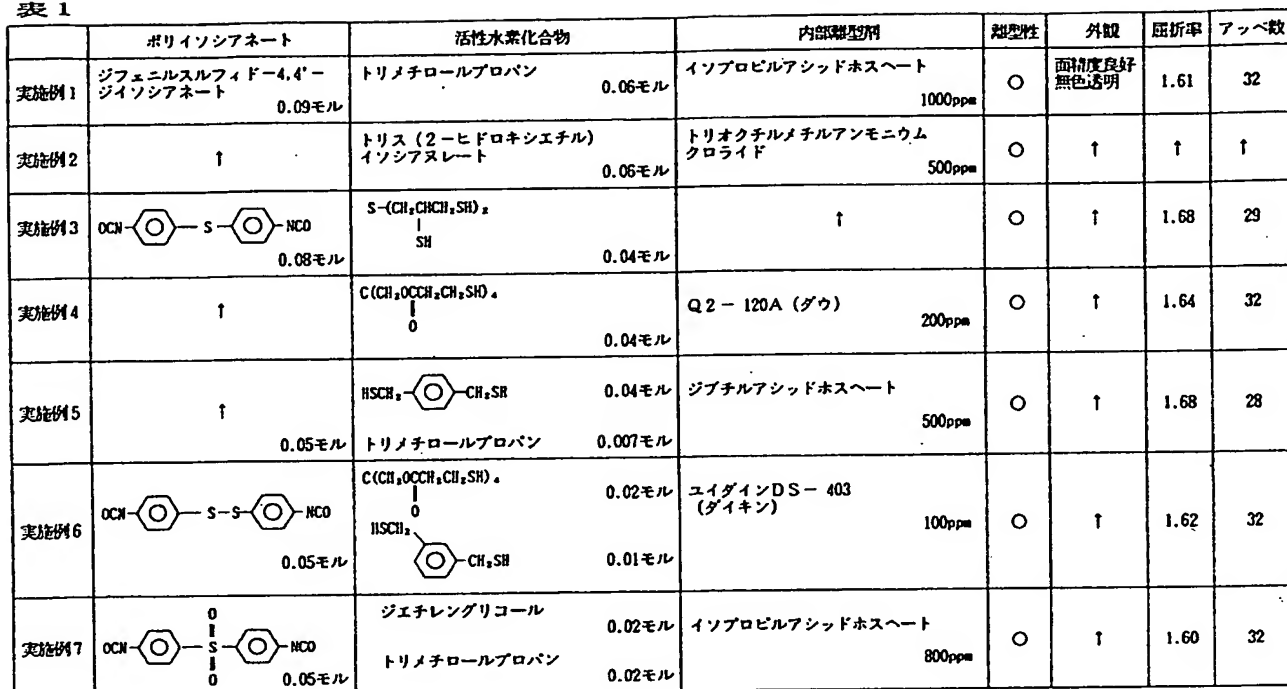 表1
ポリイソシアネート 活性水素化合物 内部離型剤 離型性 外観 屈折率 アッベ数
実施例1 ジフェニルスルフィド-4,4'-ジイソシアネート 0.09モル トリメチロールプロパン 0.06モル イソプロピルアシッドホスヘート 1000ppm ○ 面精度良好 無色透明 1.61 32
実施例2 ↑ トリス(2-ヒドロキシエチル)イソシアヌレート 0.06モル トリオクチルメチルアンモニウムクロライド 500ppm ○ ↑ ↑ ↑
実施例3 OCN-S-NCO 0.08モル S-(CH₂CHCH₂SH)₂ SH 0.04モル ↑ ○ ↑ 1.68 29
実施例4 ↑ C(CH₂OCCH₂CH₂SH)₄ O 0.04モル Q2-120A(ダウ) 200ppm ○ ↑ 1.64 32
実施例5 ↑ 0.05モル HSCH₂-CH₂SH 0.04モル トリメチロールプロパン 0.007モル ジブチルアシッドホスヘート 500ppm ○ ↑ 1.68 28
実施例6 OCN-S-S-NCO 0.05モル C(CH₂OCCH₂CH₂SH)₄ O 0.02モル HSCH₂ CH₂SH 0.01モル ユイダインDS-403(ダイキン) 100ppm ○ ↑ 1.62 32
実施例7 OCN-S-NCO O O 0.05モル ジエチレングリコール 0.02モル トリメチロールプロパン 0.02モル イソプロピルアシッドホスヘート 800ppm ○ ↑ 1.60 32